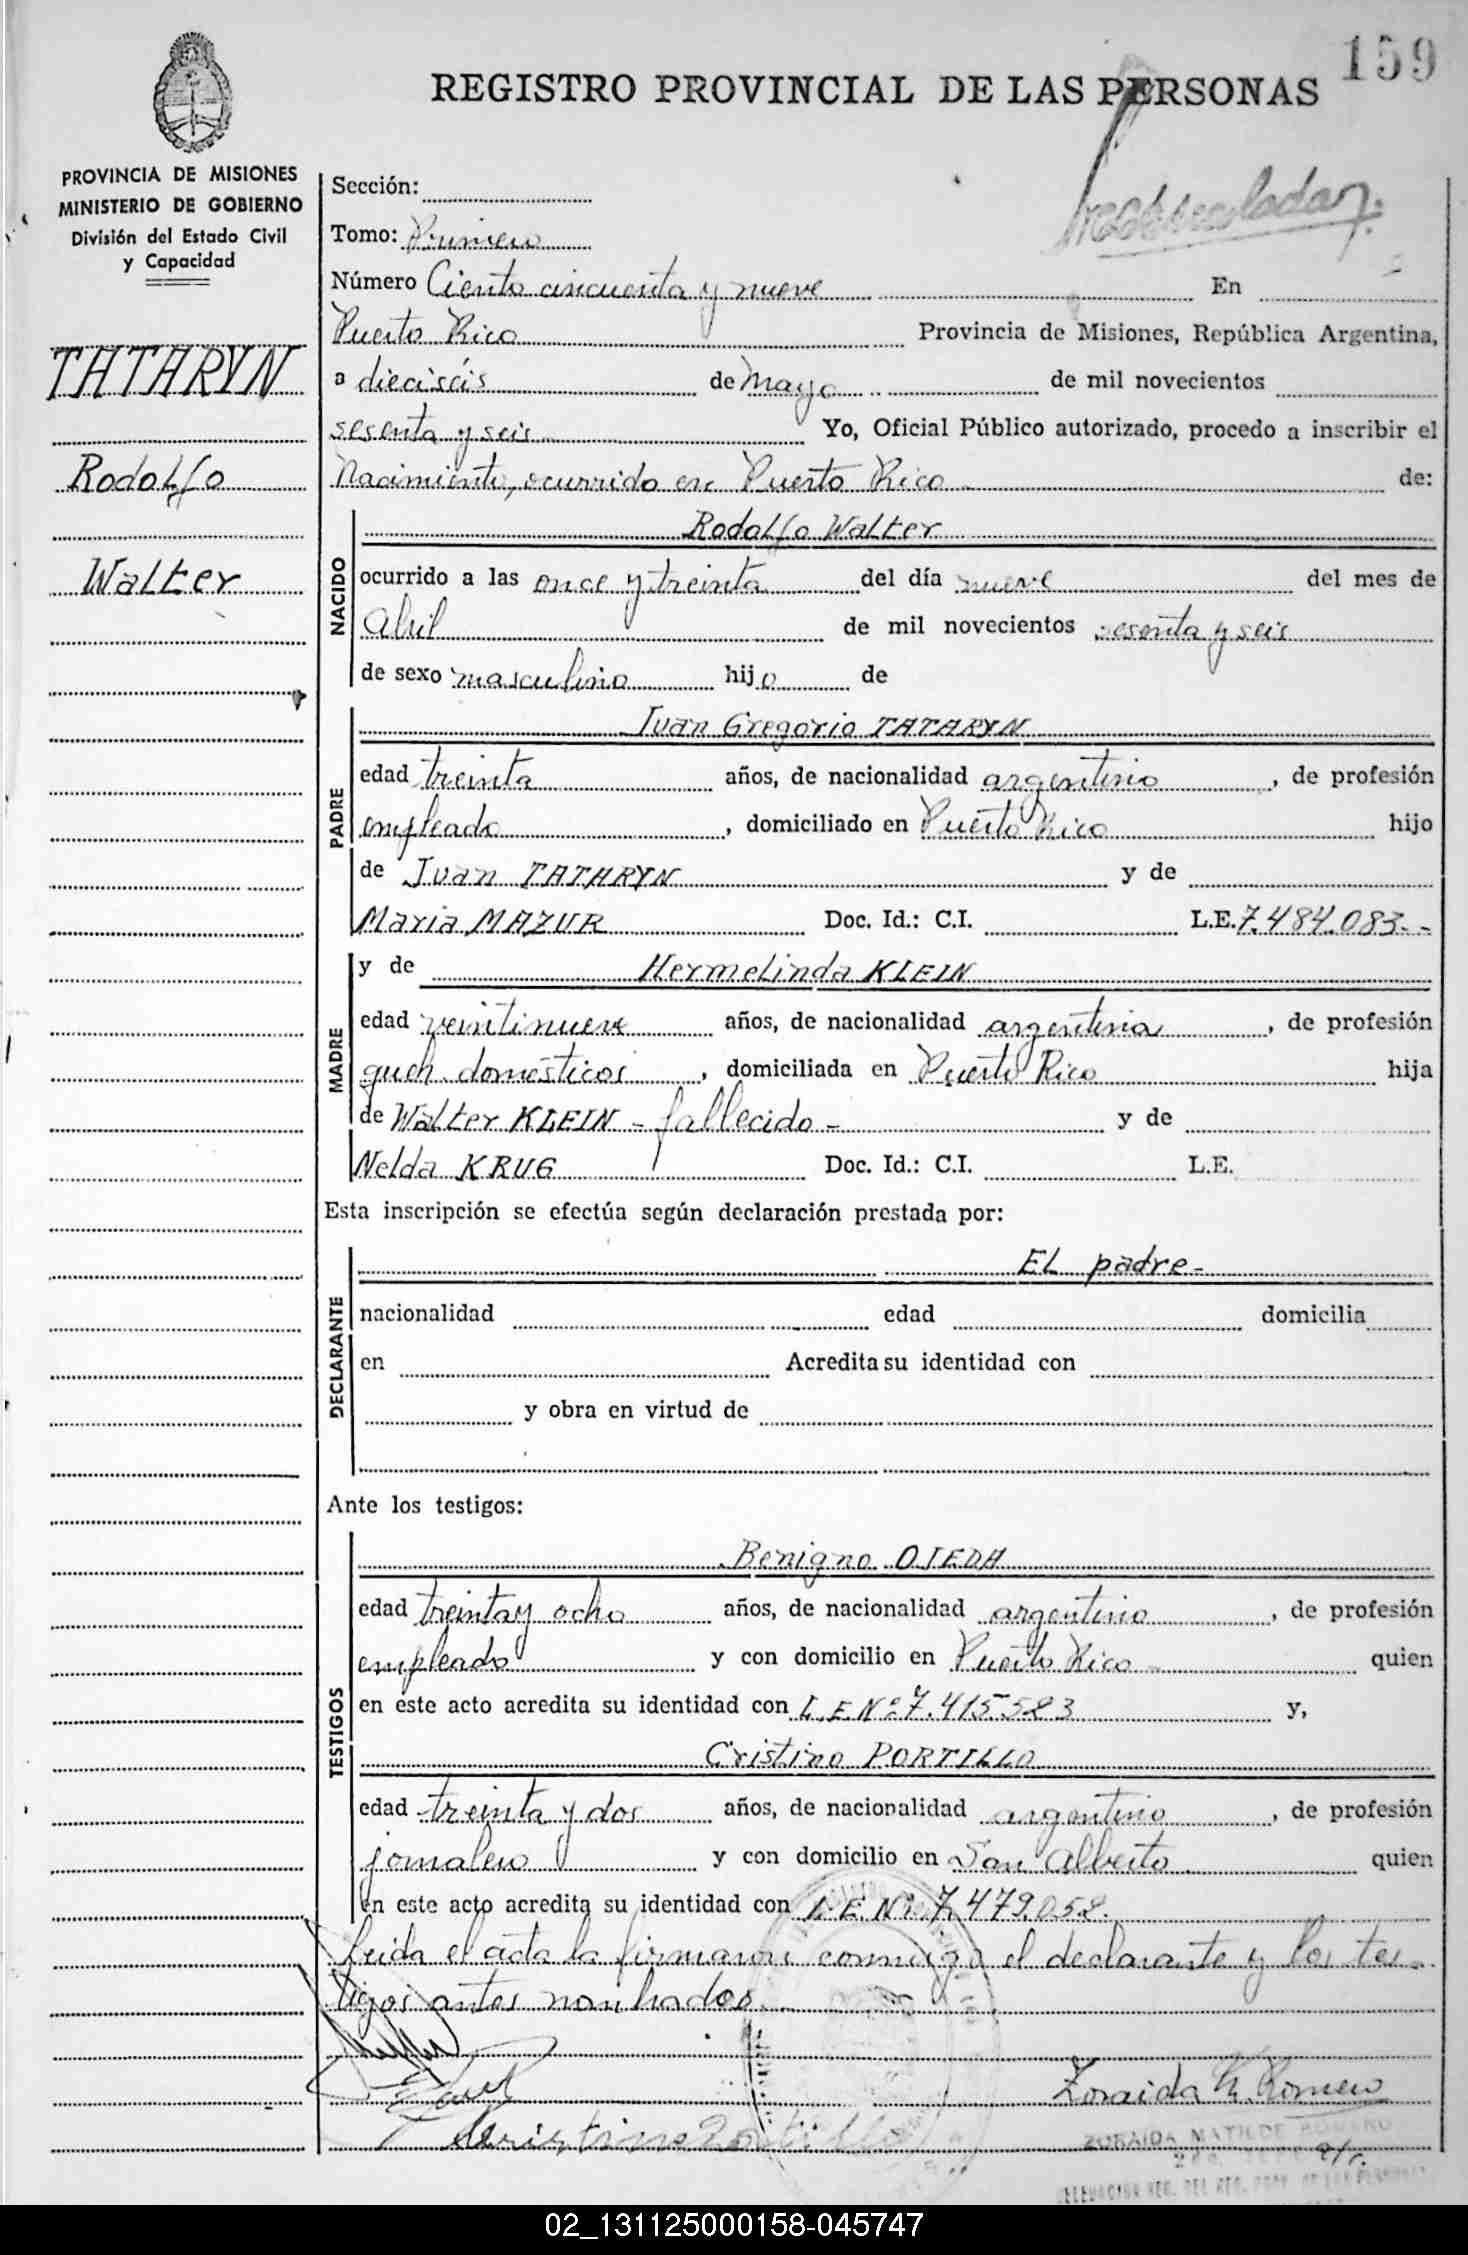 159
REGISTRO PROVINCIAL DE LAS PERSONAS
PROVINCIA DE MISIONES
MINISTERIO DE GOBIERNO
División del Estado Civil
y Capacidad
TATARYN
Rodolfo
Walter
Sección:
Tomo: Primero
Número Ciento cincuenta y nueve En
Puerto Rico Provincia de Misiones, República Argentina,
a dieciséis de Mayo de mil novecientos
sesenta y seis Yo, Oficial Público autorizado, procedo a inscribir el
Nacimiento, ocurrido en Puerto Rico de:
NACIDO
Rodolfo Walter
ocurrido a las once y treinta del día nueve del mes de
Abril de mil novecientos sesenta y seis
de sexo masculino hijo de
PADRE
Juan Gregorio TATARYN
edad treinta años, de nacionalidad argentino, de profesión
empleado, domiciliado en Puerto Rico hijo
de Juan TATARYN y de
Maria MAZUR Doc. Id.: C.I. L.E. 7.484.083.-
MADRE
y de Hermelinda KLEIN
edad veintinueve años, de nacionalidad argentina, de profesión
queh. domésticos, domiciliada en Puerto Rico hija
de Walter KLEIN - fallecido - y de
Nelda KRUG Doc. Id.: C.I. L.E.
Esta inscripción se efectúa según declaración prestada por:
DECLARANTE
El padre-
nacionalidad edad domicilia
en Acredita su identidad con
y obra en virtud de
Ante los testigos:
TESTIGOS
Benigno OJEDA
edad treinta y ocho años, de nacionalidad argentino, de profesión
empleado y con domicilio en Puerto Rico quien
en este acto acredita su identidad con L.E.Nº 7.415.523 y,
Cristino PORTILLO
edad treinta y dos años, de nacionalidad argentino, de profesión
jornalero y con domicilio en San Alberto quien
en este acto acredita su identidad con L.E.Nº 7.479.052.
Leida el acta la firmaron conmigo el declarante y los tes-
tigos antes nombrados.-
Zoraida M. Romero
Cristino Portillo
ZORAIDA MATILDE ROMERO
02_131125000158-045747